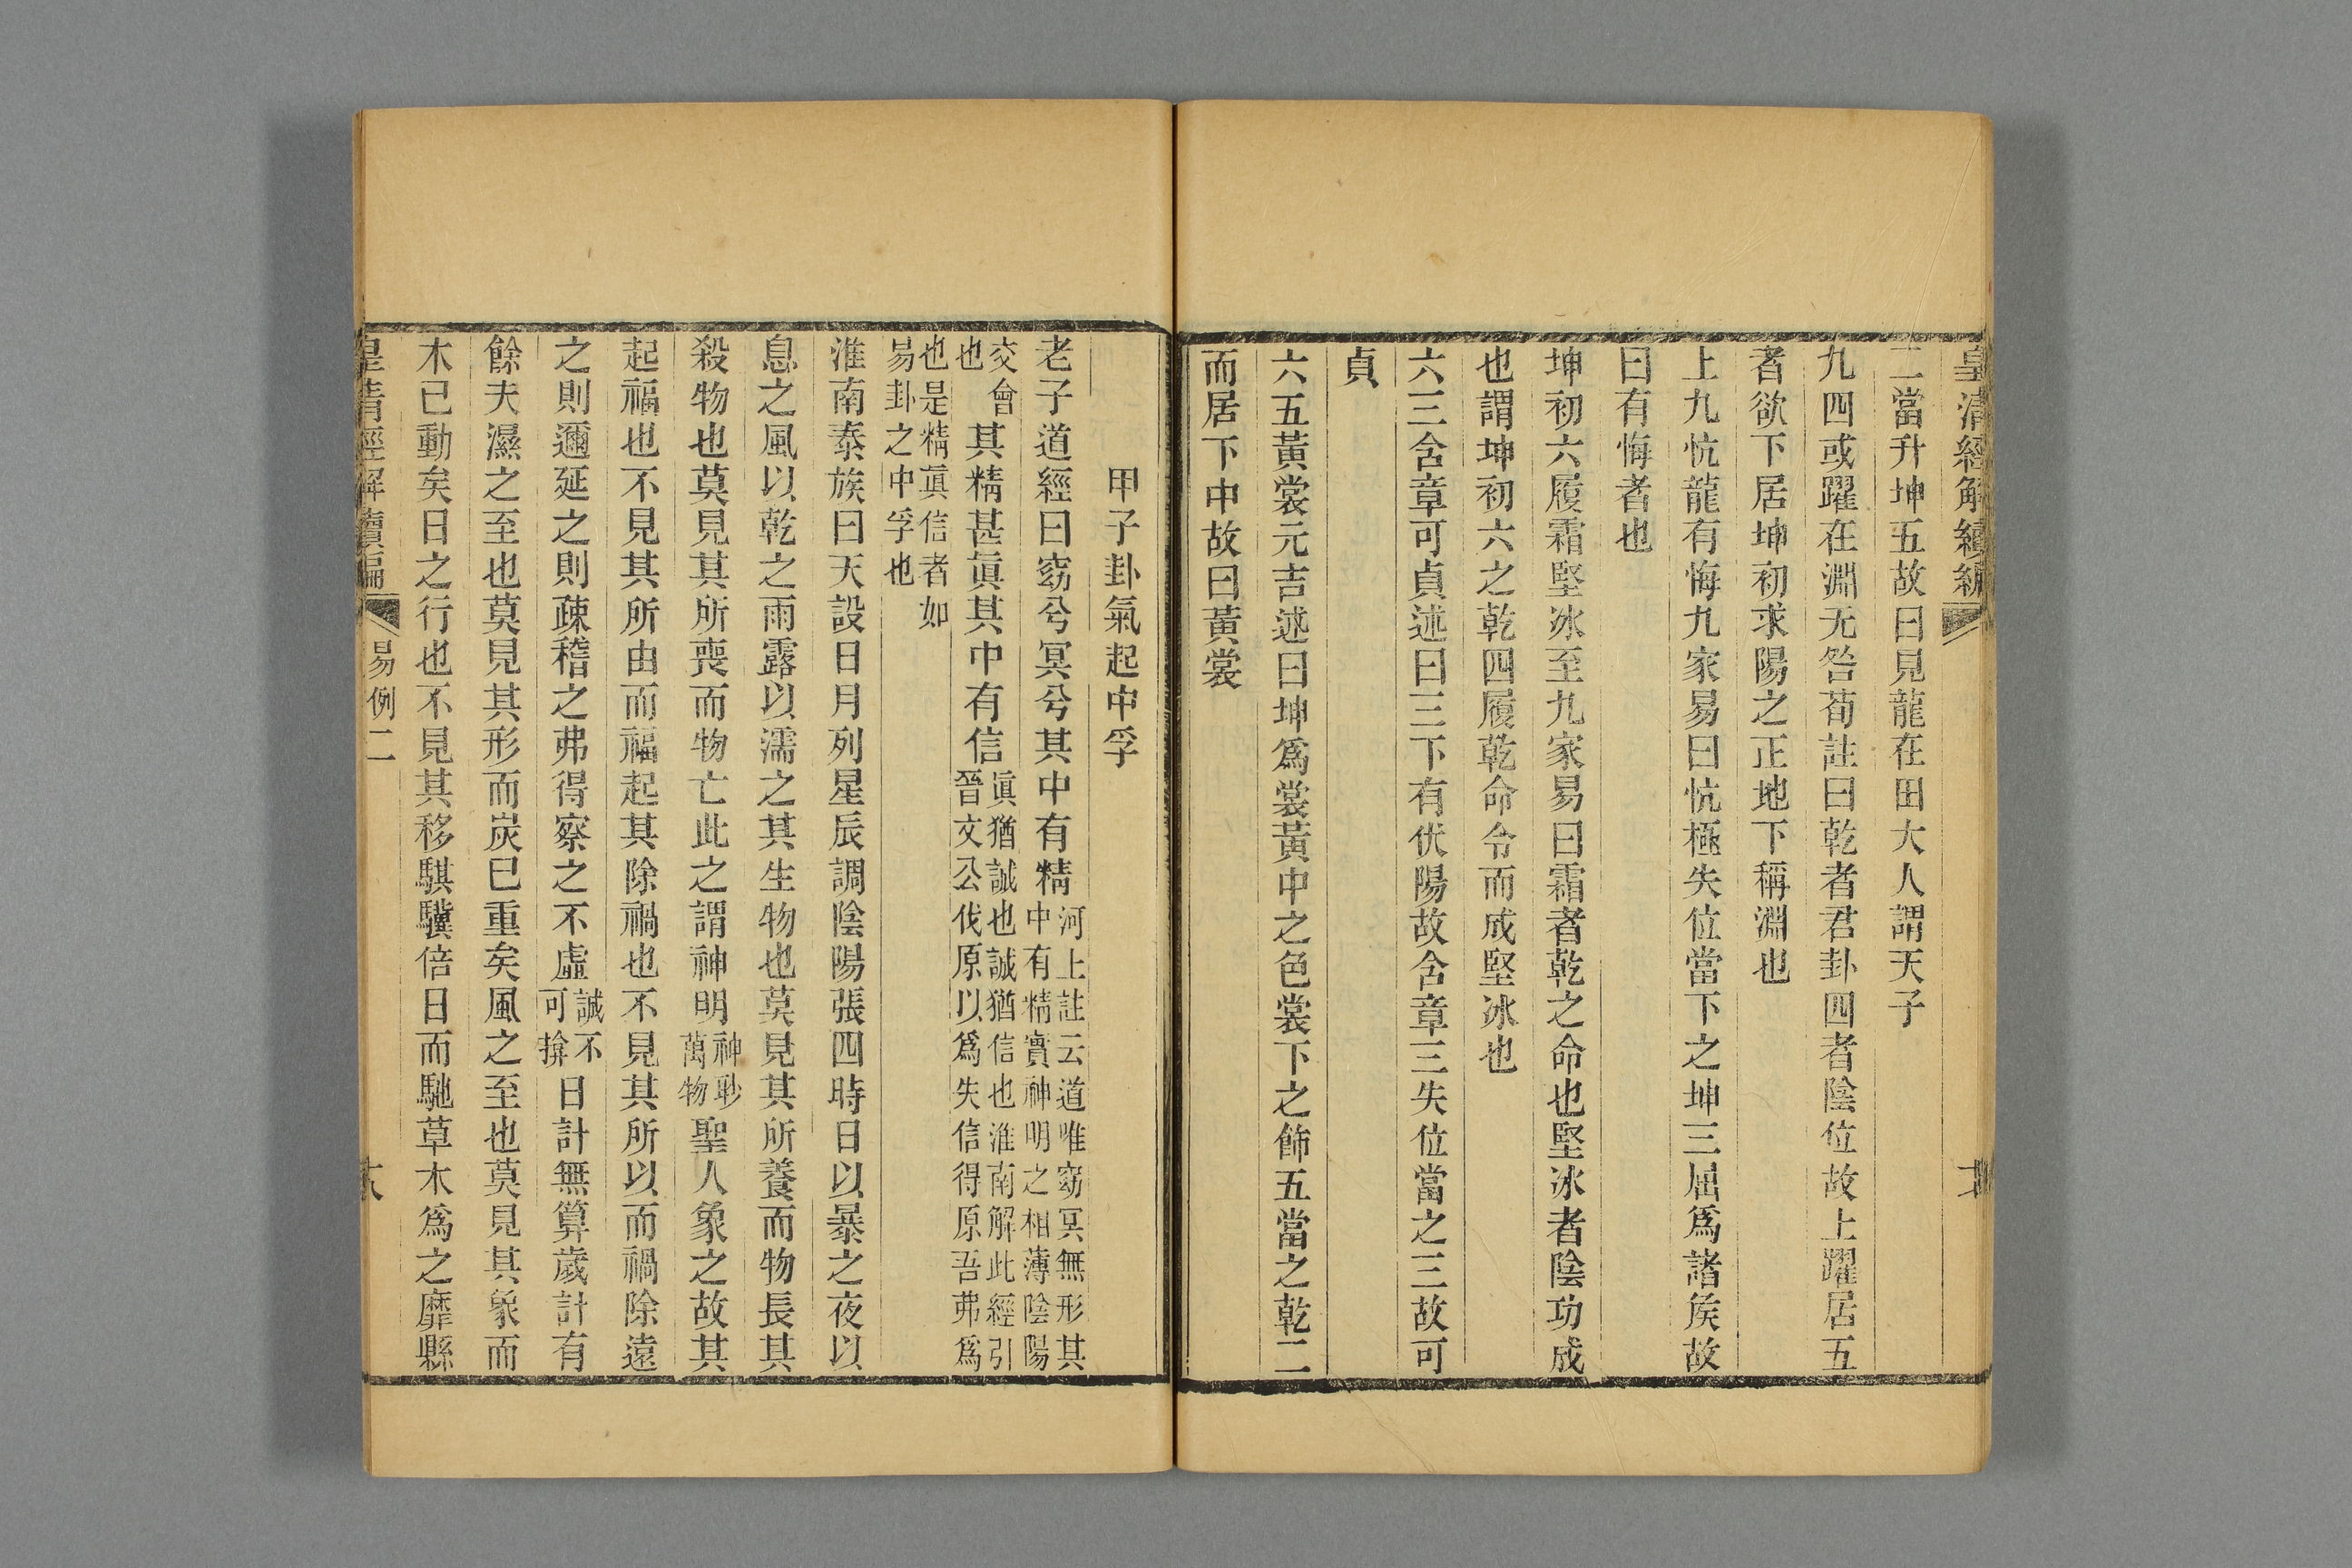 皇清經解續編
二當升坤五故曰見龍在田大人謂天子
九四或躍在淵无咎荀註曰乾者君卦四者陰位故上躍居五
者欲下居坤初求陽之正地下稱淵也
上九忼龍有悔九家易曰忼極失位當下之坤三屈爲諸矦故
曰有悔者也
坤初六履霜堅冰至九家易曰霜者乾之命也堅冰者陰功成
也謂坤初六之乾四履乾命令而成堅冰也
六三含章可貞述曰三下有伏陽故含章三失位當之三故可
貞
六五黃裳元吉述曰坤爲裳黃中之色裳下之飾五當之乾二
而居下中故曰黃裳
甲子卦氣起中孚
老子道經曰窈兮冥兮其中有精河上註云道唯窈冥無形其
中有精實神明之相薄陰陽
交會
也其精甚眞其中有信眞猶誠也誠猶信也淮南解此經引
晉文公伐原以爲失信得原吾弗爲
也是精眞信者如
易卦之中孚也
淮南泰族曰天設日月列星辰調陰陽張四時日以暴之夜以
息之風以乾之雨露以濡之其生物也莫見其所養而物長其
殺物也莫見其所喪而物亡此之謂神明神眇
萬物聖人象之故其
起福也不見其所由而福起其除禍也不見其所以而禍除遠
之則邇延之則疎稽之弗得察之不虛誠不
可揜日計無算歲計有
餘夫濕之至也莫見其形而炭已重矣風之至也莫見其象而
木已動矣日之行也不見其移騏驥倍日而馳草木爲之靡縣
皇清經解續編
易例二
六